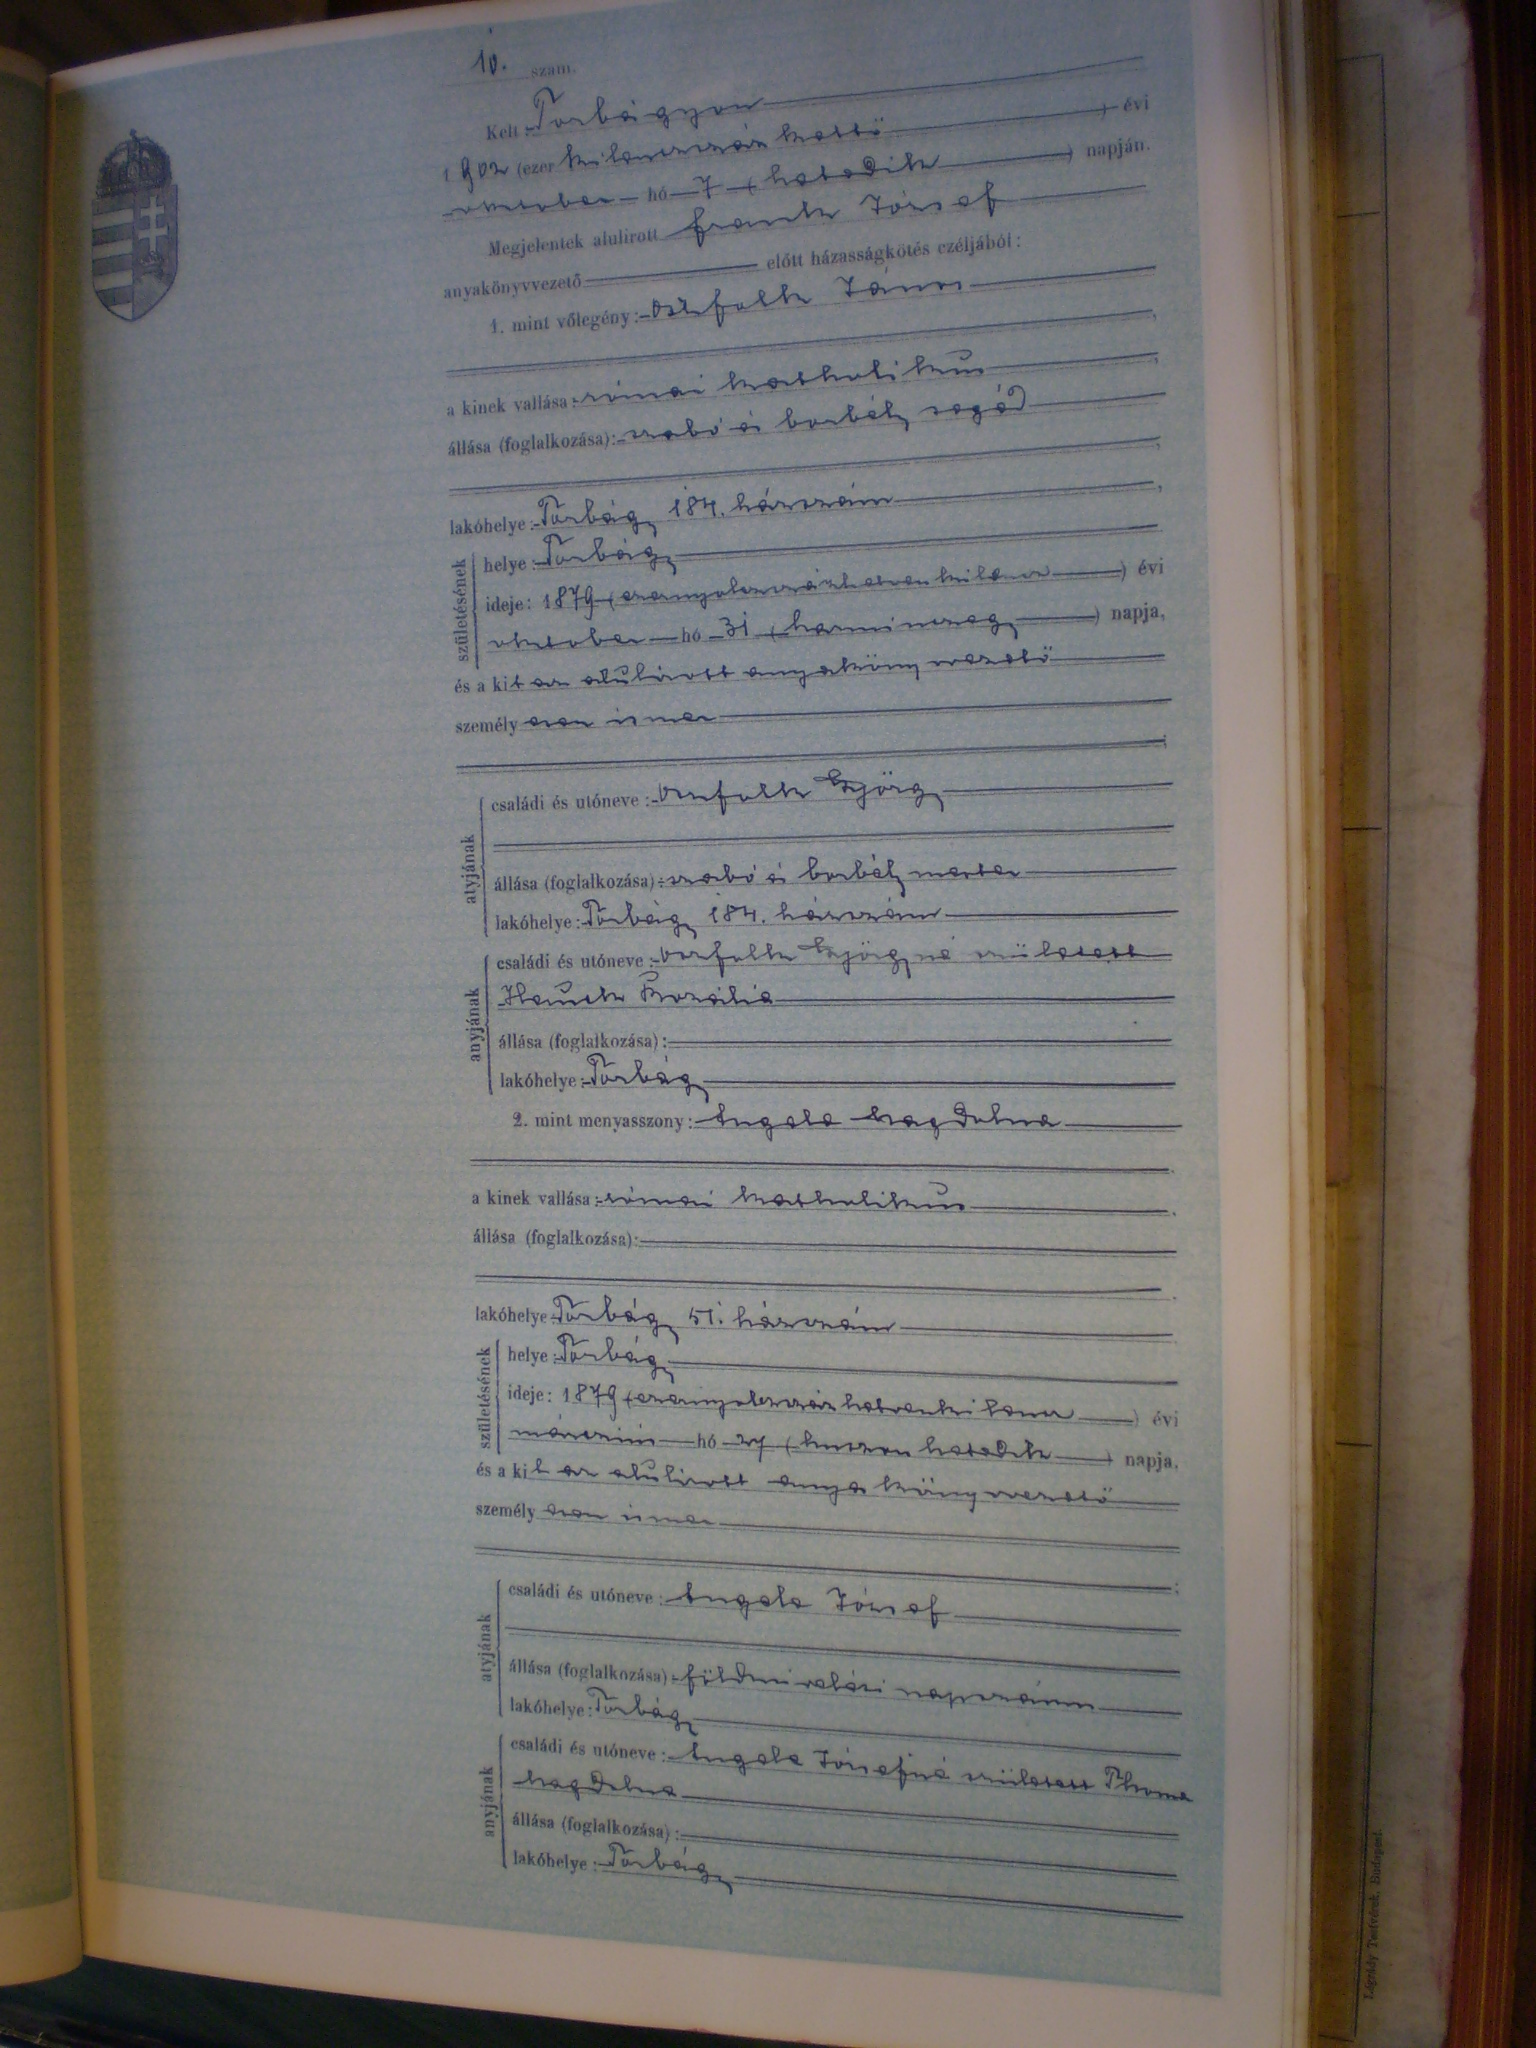 10. szám.
Kelt: Torbágyon
1902 (ezer kilenczszáz kettő) évi
október hó 7 (hetedik) napján.
Megjelentek alulírott Frank József
anyakönyvvezető előtt házasságkötés czéljából:
1. mint vőlegény: János
a kinek vallása: római katholikus
állása (foglalkozása): szabó és borbély segéd
lakóhelye: Torbágy 184. házszám
születésének
helye: Torbágy
ideje: 1879 (ezernyolczszázhetvenkilencz) évi
október hó 31 (harminczegy) napja,
és a kit az alulírott anyakönyvvezető
személyesen ismer
atyjának
családi és utóneve: György
állása (foglalkozása): szabó és borbély mester
lakóhelye: Torbágy 184. házszám
anyjának
családi és utóneve: Györgyné született
Hauck Rozália
állása (foglalkozása):
lakóhelye: Torbágy
2. mint menyasszony: Angele Magdolna
a kinek vallása: római katholikus
állása (foglalkozása):
lakóhelye: Torbágy 51. házszám
születésének
helye: Torbágy
ideje: 1879 (ezernyolczszázhetvenkilencz) évi
márczius hó 27 (huszonhetedik) napja,
és a kit az alulírott anyakönyvvezető
személyesen ismer
atyjának
családi és utóneve: Angele József
állása (foglalkozása): földmivelési napszámos
lakóhelye: Torbágy
anyjának
családi és utóneve: Angele Józsefné született Thoma
Magdolna
állása (foglalkozása):
lakóhelye: Torbágy
Légrády Testvérek, Budapest.